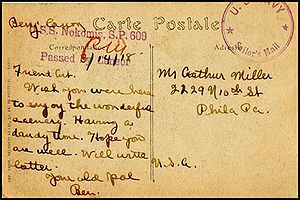 Benj. Carson
Carte Postale
U.S.S. Nokomis, S.P. 609
Correspon
Passed By Censor
U.S. NAVY
Sailor's Mail
Friend Art.
Wish you were here
to enjoy the wonderful
scenery. Having a
dandy time. Hope you
are well. Will write
latter.
Your old pal
Ben.
Mr Arthur Miller
2229 N 10th St
Phila Pa.
U.S.A.